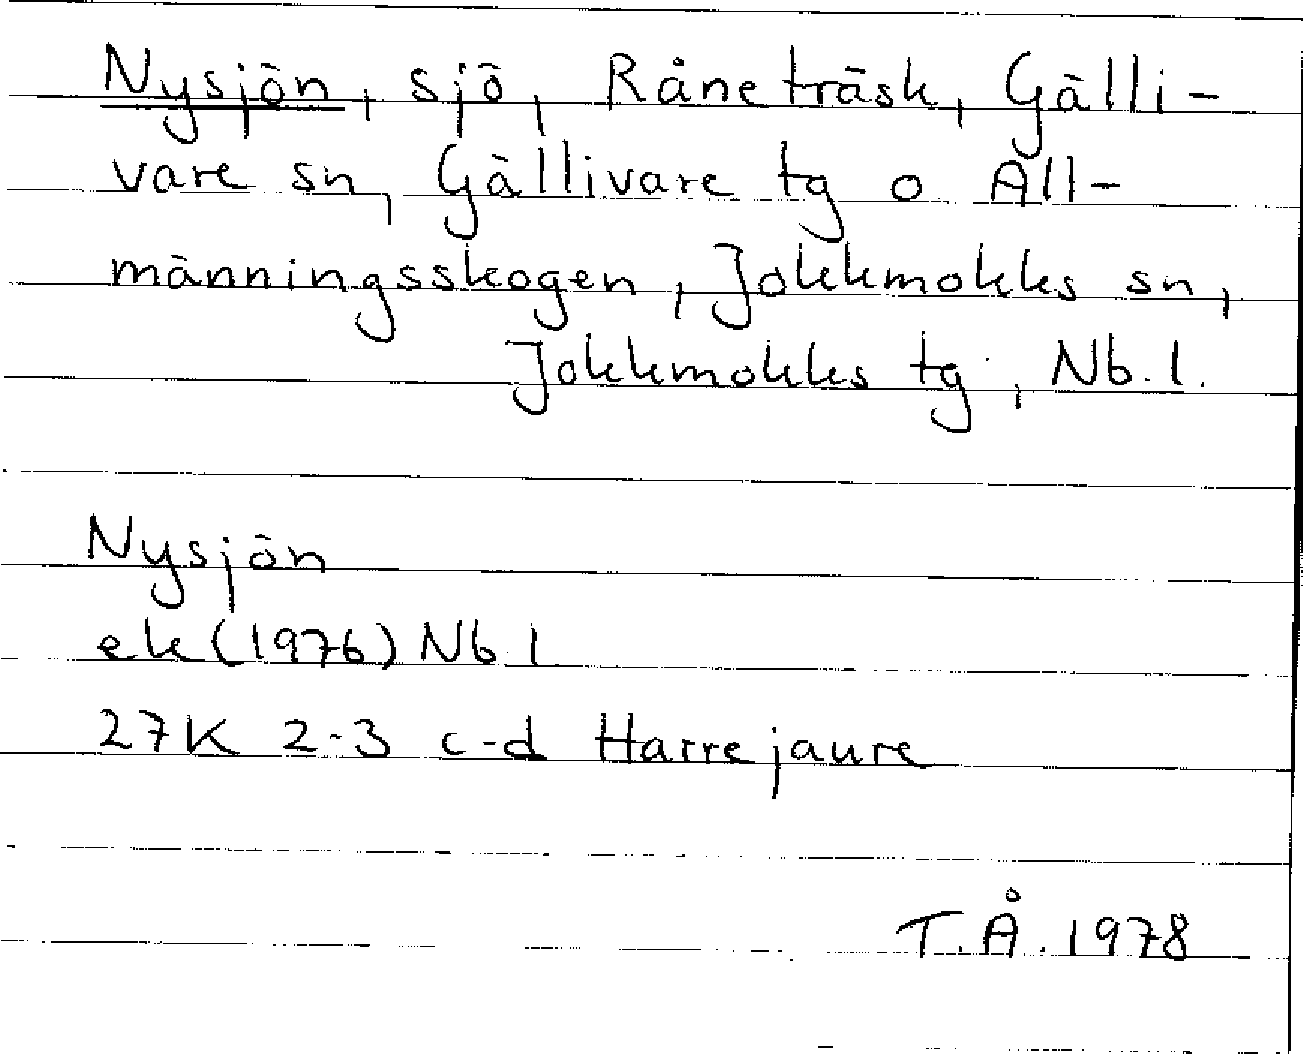 Nysjön, sjö, Råneträsk, Gälli-
vare sn, Gällivare tg o All-
männingsskogen, Jokkmokks sn,
Jokkmokks tg, Nb. l.
Nysjön
ek (1976) Nb l
27K 2-3 c-d Harrejaure
T.Å. 1978